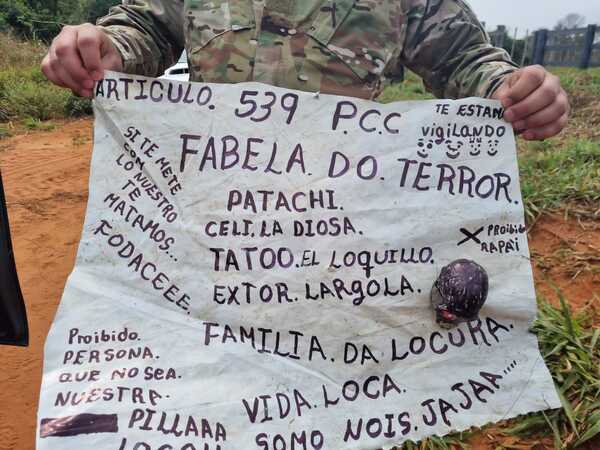 ARTICULO. 539 P.C.C
TE ESTAN
vigilANDO
FABELA. DO. TERROR.
SI TE METE
CON
LO NUESTRO
TE
MATAMOS...
FODACEEE.
PATACHI.
CELI. LA DIOSA.
TATOO. EL LOQUILLO.
EXTOR. LARGOLA.
X PROibiD
RAPAI
FAMILIA. DA LOCURA.
Proibido.
PERSONA.
QUE NO SEA.
NUESTRA.
PILLAAA
VIDA. LOCA.
SOMO NOIS. JAJAA....